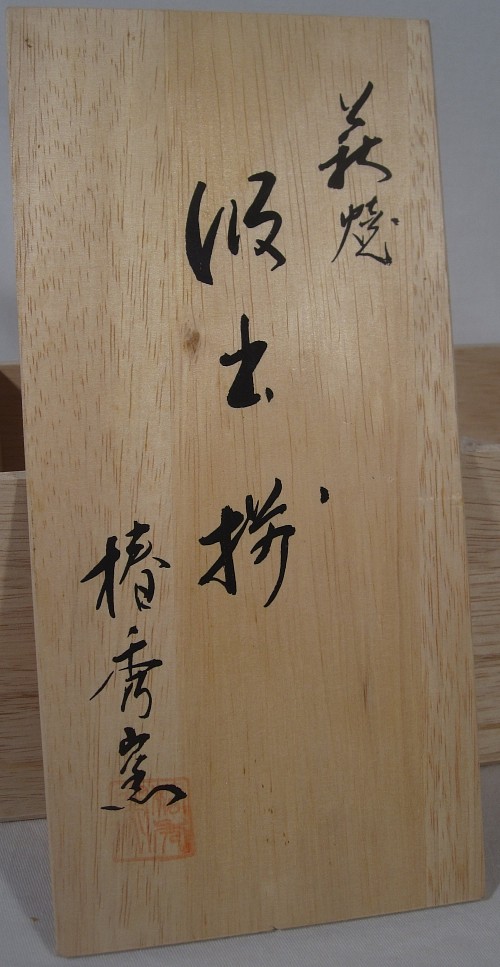 萩焼
汲出揃
椿秀窯